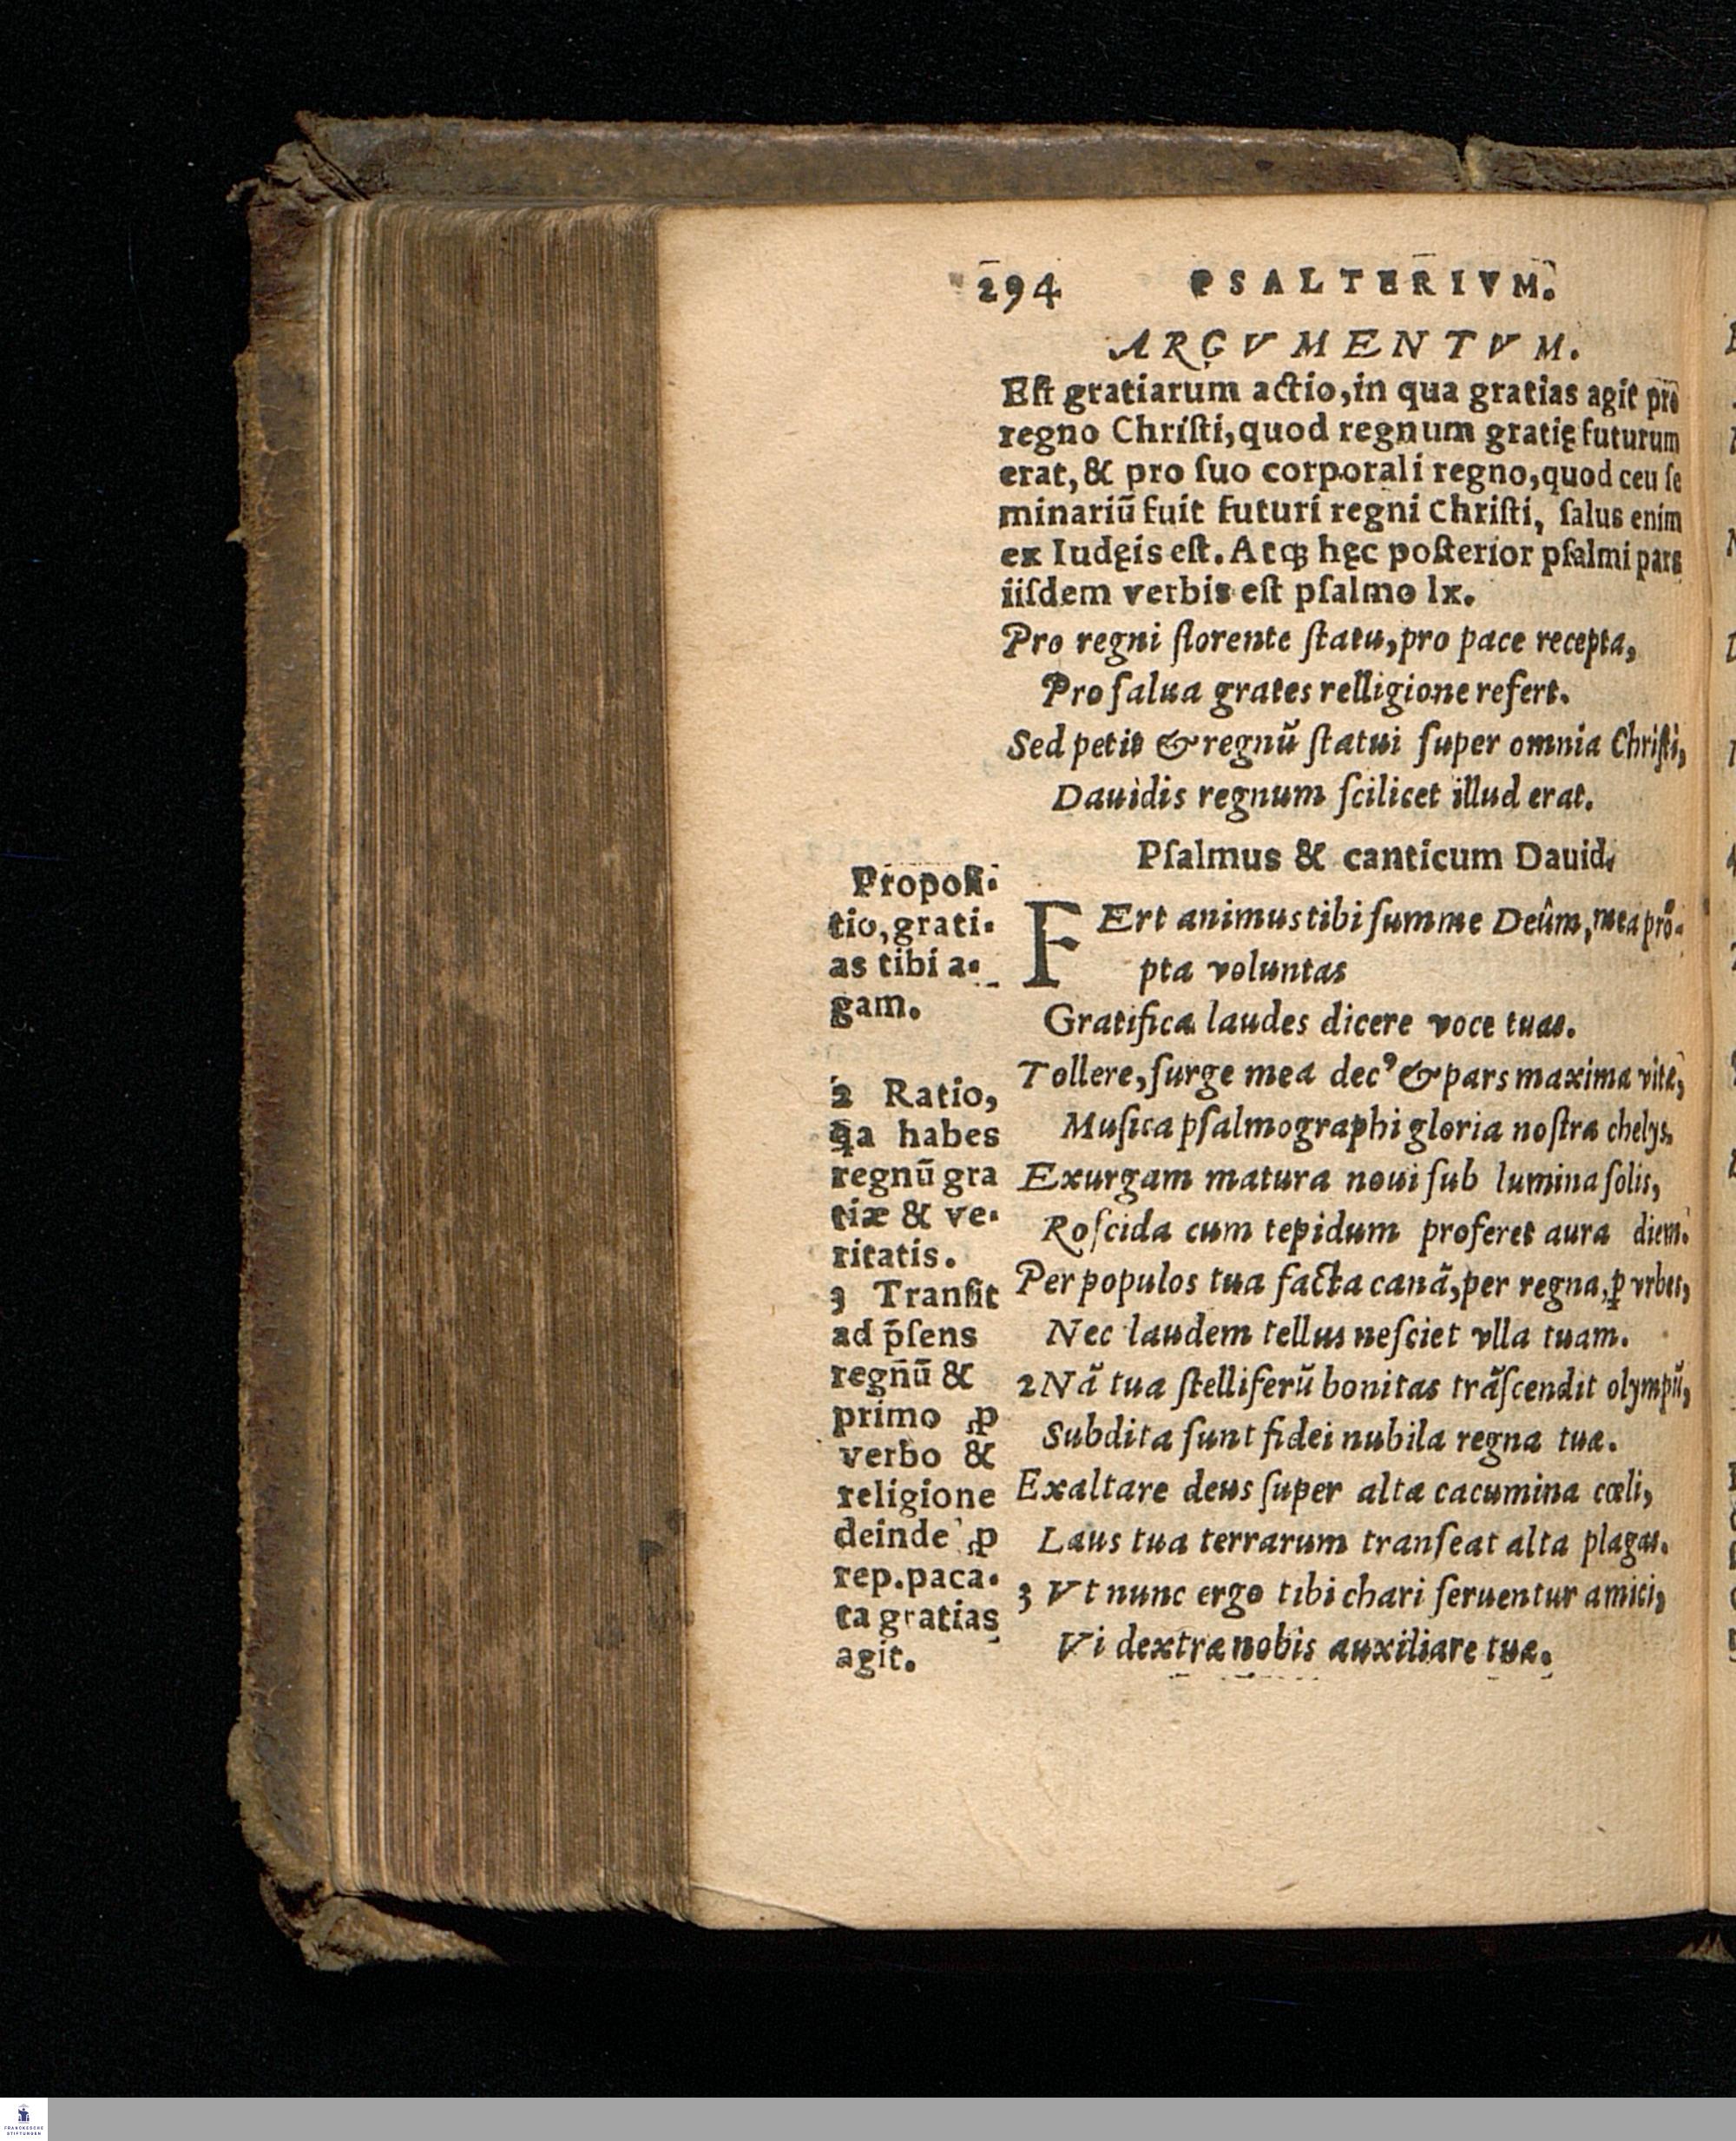 294 PSALTERIVM.
ARGVMENTVM.
Eſt gratiarum actio, in qua gratias agit pro
regno Chriſti, quod regnum gratię futurum
erat, & pro ſuo corporali regno, quod ceu ſe
minariũ fuit futuri regni Chriſti, ſalus enim
ex Iudęis eſt. Atqꝫ hęc poſterior pſalmi pars
iiſdem verbis eſt pſalmo lx.
Pro regni florente ſtatu, pro pace recepta,
Pro ſalua grates relligione refert.
Sed petit & regnũ ſtatui ſuper omnia Chriſti,
Dauidis regnum ſcilicet illud erat.
Pſalmus & canticum Dauid.
FErt animus tibi ſumme Deûm, mea prõ-
pta voluntas
Gratifica laudes dicere voce tuas.
Tollere, ſurge mea decꝰ & pars maxima vitę,
Muſica pſalmographi gloria noſtra chelys.
Exurgam matura noui ſub lumina ſolis,
Roſcida cum tepidum proferet aura diem.
Per populos tua facta canã, per regna, ꝑ vrbes,
Nec laudem tellus neſciet vlla tuam.
2 Nã tua ſtelliferũ bonitas trãſcendit olympũ,
Subdita ſunt fidei nubila regna tuæ.
Exaltare deus ſuper alta cacumina cœli,
Laus tua terrarum tranſeat alta plagas.
3 Vt nunc ergo tibi chari ſeruentur amici,
Vi dextræ nobis auxiliare tuæ.
Propoſi-
tio, grati-
as tibi a-
gam.
2 Ratio,
q̃a habes
regnũ gra
tiæ & ve-
ritatis.
3 Tranſit
ad p̃ſens
regñũ &
primo ꝓ
verbo &
religione
deinde ꝓ
rep. paca-
ta gratias
agit.
FRANCKESCHE
STIFTUNGEN